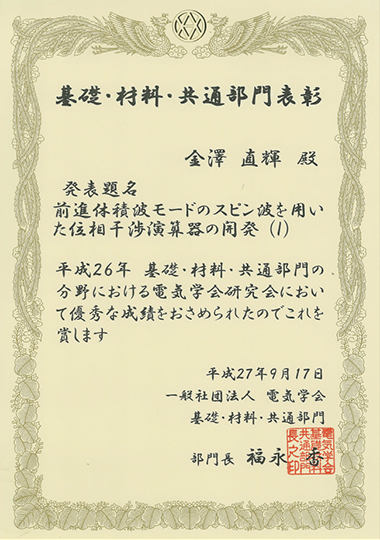 基礎・材料・共通部門表彰
金澤 直輝 殿
発表題名
前進体積波モードのスピン波を用い
た位相干渉演算器の開発 (1)
平成26年 基礎・材料・共通部門の
分野における電気学会研究会におい
て優秀な成績をおさめられたのでこれを
賞します
平成27年9月17日
一般社団法人 電気学会
基礎・材料・共通部門
部門長 福永 香
電気学会
基礎材料
共通部門
長之印